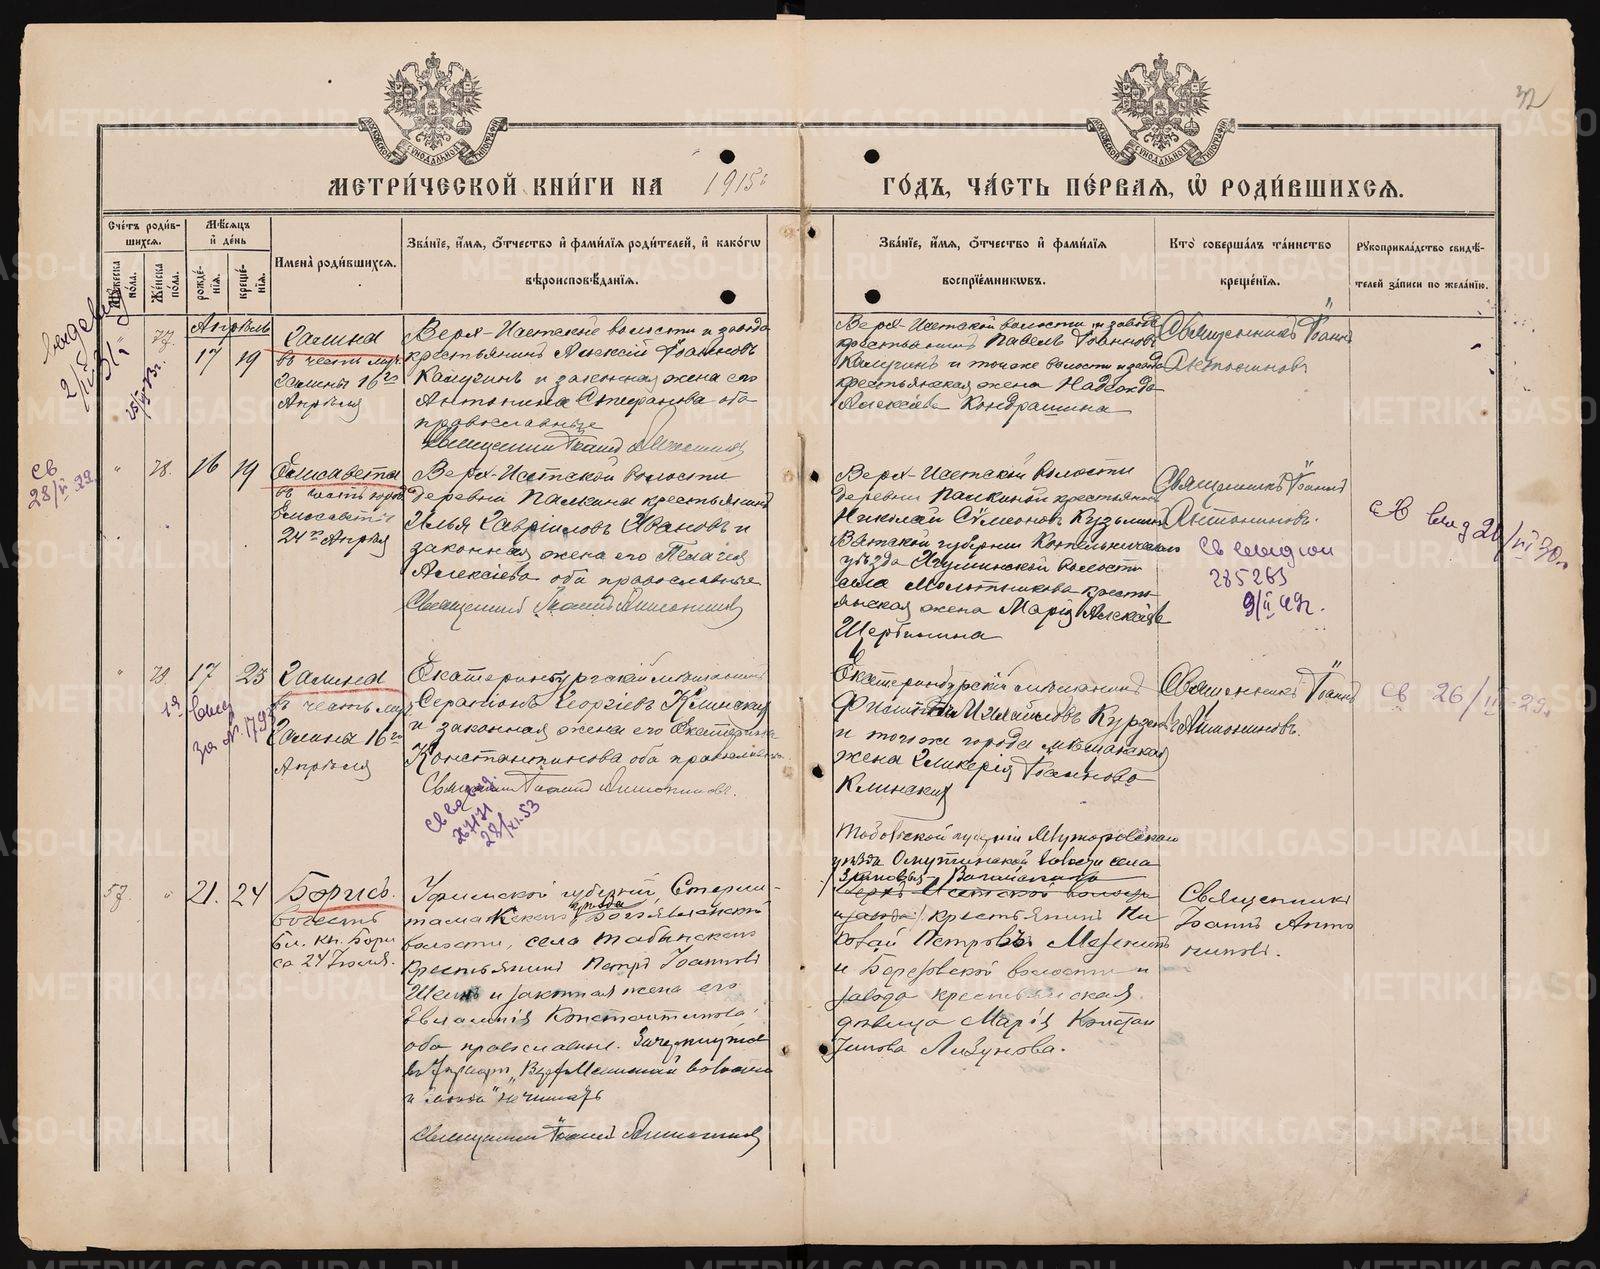 32
МЕТРИ́ЧЕСКОЙ КНИ́ГИ НА 1915 г
ГО́ДЪ, ЧА́СТЬ ПЕ́РВАЯ, Ѽ РОДИ́ВШИХСЯ.
Сче́тъ роди́вшихся.
Мꙋ́жеска по́ла.
Же́нска по́ла.
Мѣ́сяцъ и҆ де́нь
рожде́нїя.
креще́нїя.
И҆мена̀ роди́вшихся.
Зва́нїе, и҆́мя, ѻ҆́тчество и҆ фами́лїя роди́телей, и҆ како́гѡ
вѣроисповѣ́данїя.
Зва́нїе, и҆́мя, ѻ҆́тчество и҆ фами́лїя
воспрїе́мникѡвъ.
Кто̀ соверша́лъ та́инство
креще́нїя.
Рꙋкоприкла́дство свидѣ́телей за́писи по жела́нїю.
77.
Апрѣль
17 19
Галина
въ честь муч.
Галины 16го
Апрѣля
Верх-Исетской волости и завода
крестьянинъ Алексій Іоанновъ
Калугинъ и законная жена его
Антонина Стефанова оба
православные
Священникъ Іоаннъ Антониновъ
Верх-Исетской волости и завода
крестьянинъ Павелъ Іоанновъ
Калугинъ и тогоже волости и завода
крестьянская жена Надежда
Алексіева Кондрашина
Священникъ Іоаннъ
Антониновъ
св
28/II 29
" 78. 16 19
Елисавета
въ честь
Елисаветы
24го Апрѣля
Верх-Исетской волости
деревни Палкиной крестьянинъ
Илья Гавріиловъ Ивановъ и
законная жена его Пелагія
Алексіева оба православные
Священникъ Іоаннъ Антониновъ
Верх-Исетской волости
деревни Палкиной крестьянинъ
Николай Сѵмеоновъ Кузьминъ
Вятской губерніи Котельническаго
уѣзда волости
села крестьянская жена Марія Алексіева
Щербинина
Священникъ Іоаннъ
Антониновъ.
285263
9/II 49г.
" 79. 17 23
Галина
въ честь муч.
Галины 16го
Апрѣля
Екатеринбургскій мѣщанинъ
Серапіонъ Георгіевъ Клинский
и законная жена его Екатерина
Константинова оба православные
Священникъ Іоаннъ Антониновъ.
28/XI-53
Екатеринбургскій мѣщанинъ
Измаиловъ
и тогоже города мѣщанская
жена Гликерія Іоаннова
Клинская
Священникъ Іоаннъ
Антониновъ.
св 26/III-29г
57. " 21. 24
Борисъ.
въ честь
бл. кн. Бориса 24 Іюля.
Уфимской губерніи, Стерлитамакскаго уѣзда Богоявленской
волости, села Табынскаго
крестьянинъ Петръ Іоанновъ
и законная жена его
Евлампія Константинова,
оба православные. Зачеркнутое
Священникъ Іоаннъ Антониновъ
Тобольской губерніи Ялуторовскаго
уѣзда Омутинской волости села
Верхъ Исетской волости
и завода крестьянинъ Николай Петровъ
и Березовской волости и
завода крестьянская
дѣвица Марія Константинова Лизунова.
Священникъ
Іоаннъ Антониновъ.